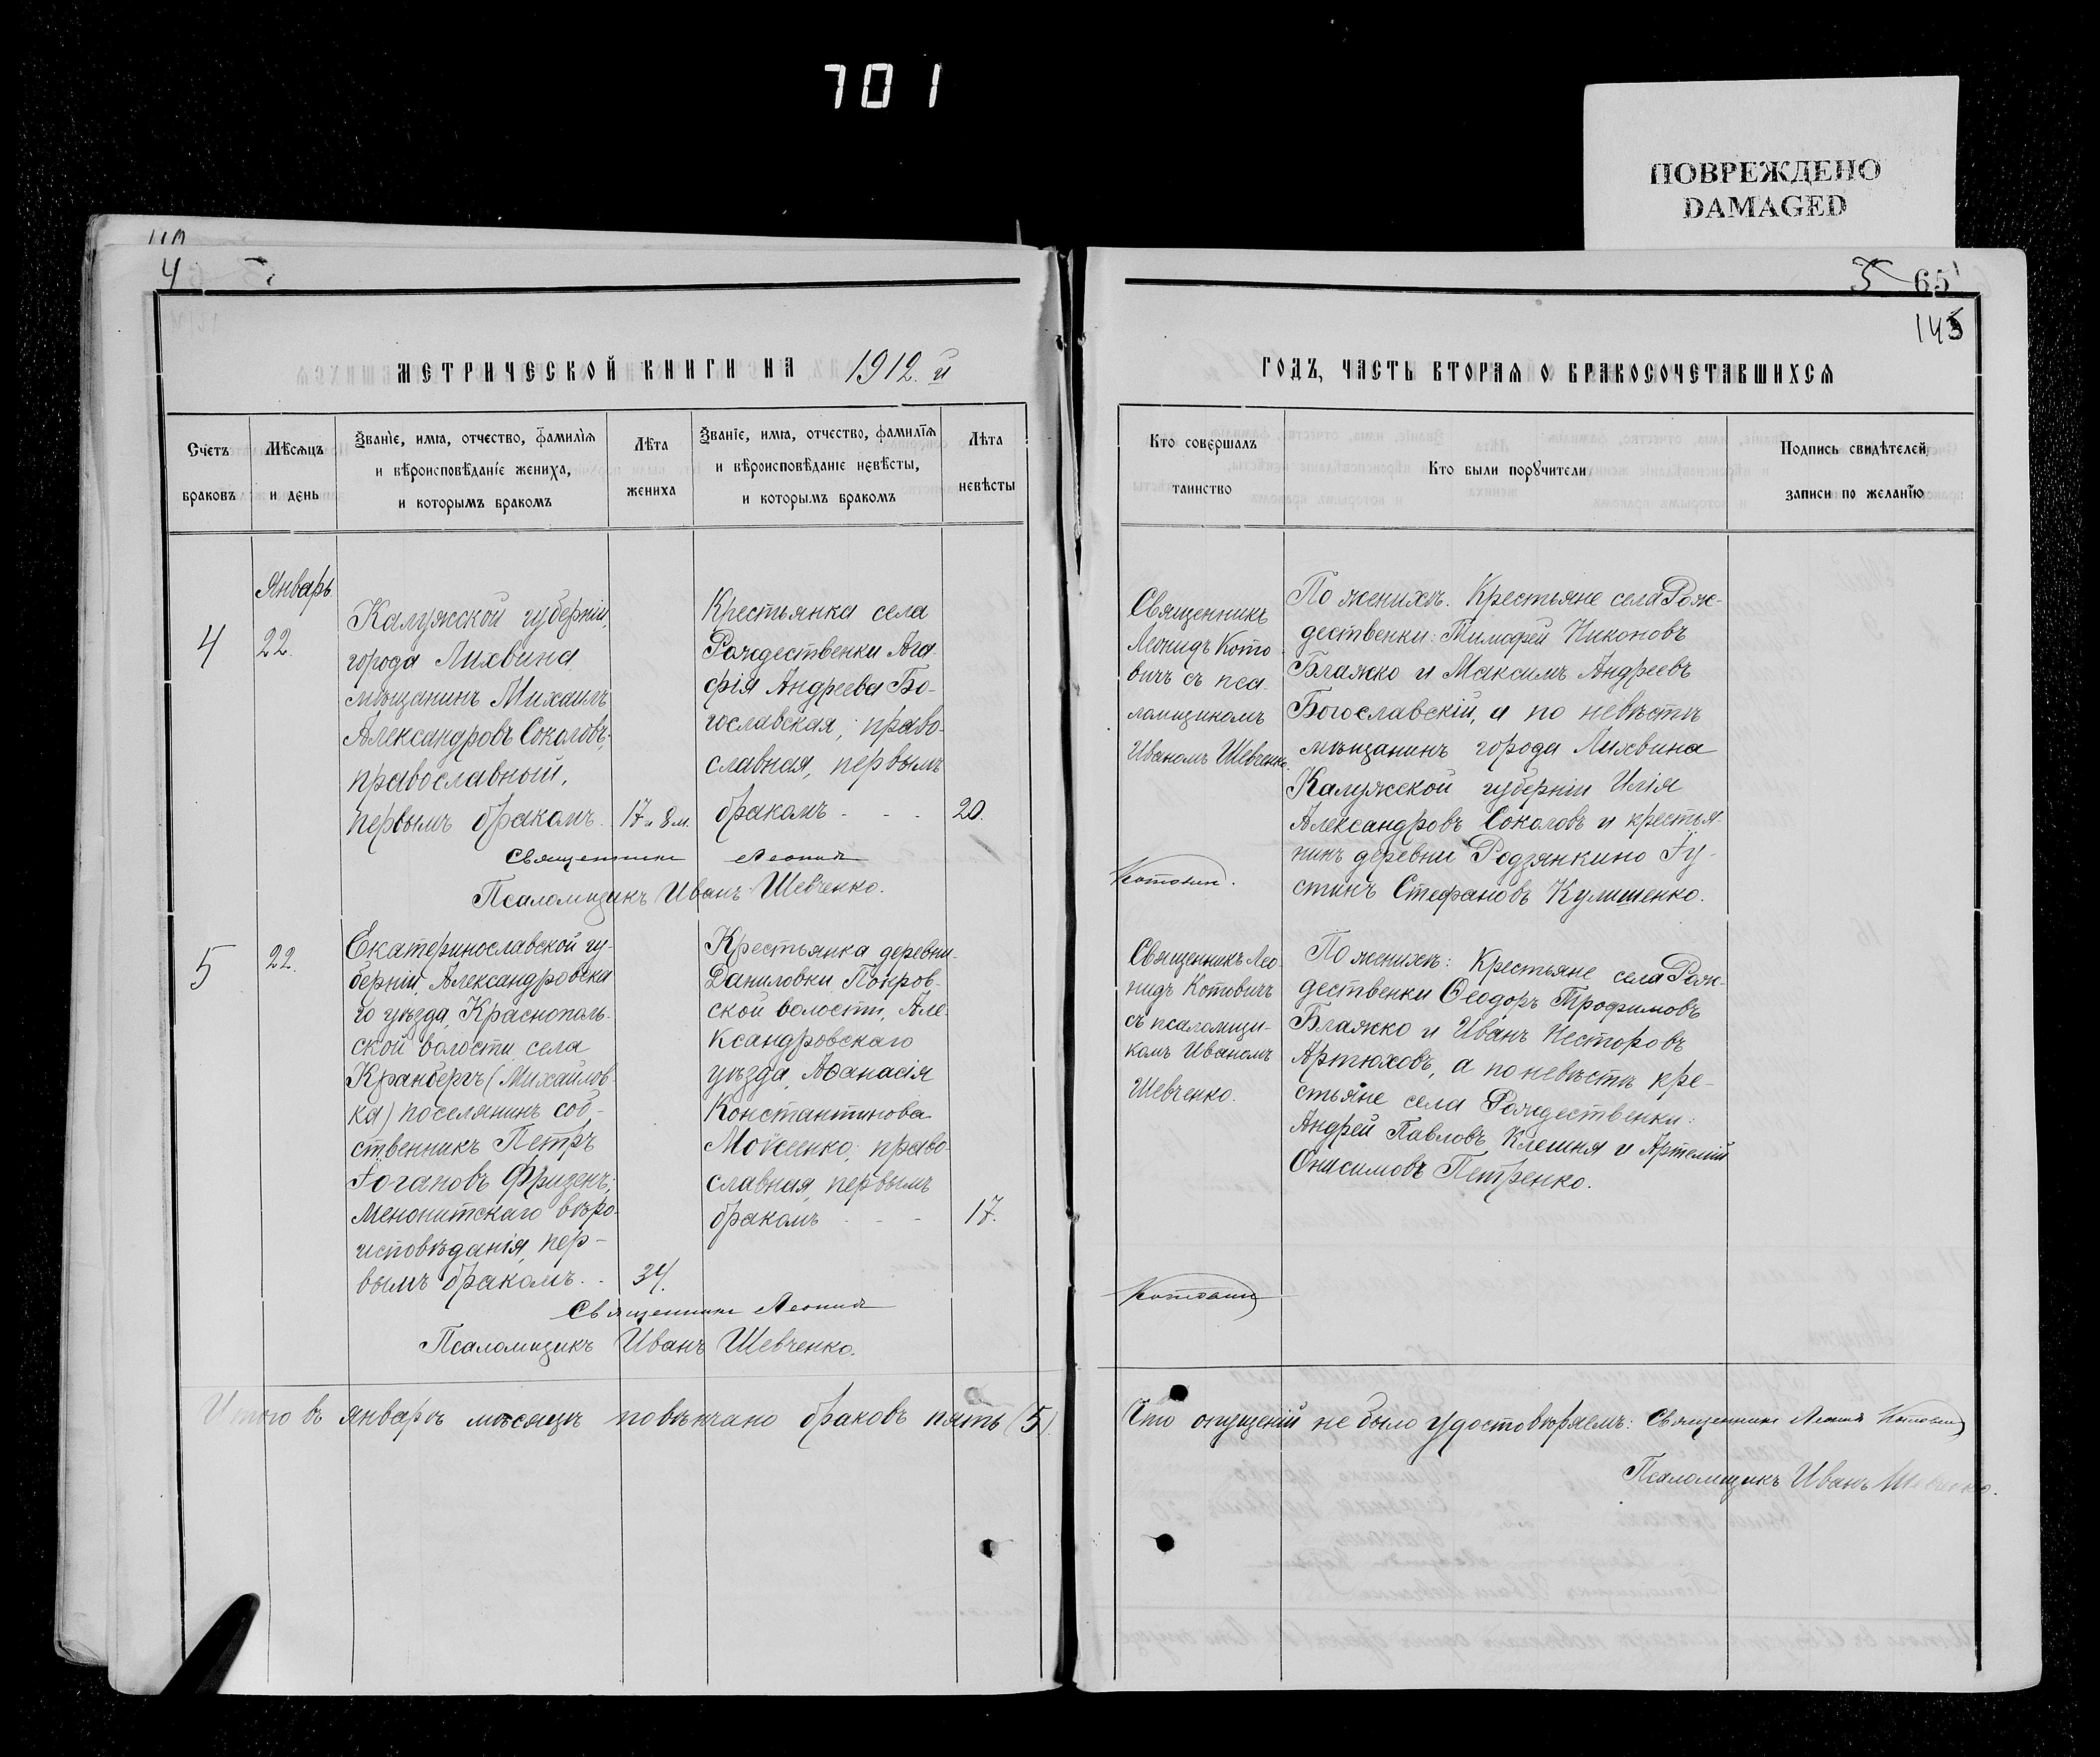 701
ПОВРЕЖДЕНО
DAMAGED
4
5
65
145
МЕТРИЧЕСКОЙ КНИГИ НА 1912.й
ГОДЪ, ЧАСТЬ ВТОРАЯ О БРАКОСОЧЕТАВШИХСЯ
Счетъ браковъ
Мѣсяцъ и день
Званіе, имя, отчество, фамилія
и вѣроисповѣданіе жениха,
и которымъ бракомъ
Лѣта жениха
Званіе, имя, отчество, фамилія
и вѣроисповѣданіе невѣсты,
и которымъ бракомъ
Лѣта невѣсты
Кто совершалъ
таинство
Кто были поручители
Подпись свидѣтелей
записи по желанію
4
Январь
22.
Калужской губерніи,
города Лихвина
мѣщанинъ Михаилъ
Александровъ Соколовъ,
православный,
первымъ бракомъ.
17 и 8 м.
Крестьянка села
Рождественки Ага
фія Андреева Бо-
гославская, право-
славная, первымъ
бракомъ - - -
20.
Священникъ
Леонидъ Кото
вичъ съ пса
ломщикомъ
Иваномъ Шевченко.
По женихѣ. Крестьяне села Рож-
дественки: Тимофей Никоновъ
Блажко и Максимъ Андреевъ
Богославскій, а по невѣстѣ
мѣщанинъ города Лихвина
Калужской губерніи Илія
Александровъ Соколовъ и крестья-
нинъ деревни Родзянкино Іу-
стинъ Стефановъ Кулишенко.
Священникъ Леонидъ
Котовичъ.
Псаломщикъ Иванъ Шевченко.
5
22.
Екатеринославской гу-
берніи, Александровска
го уѣзда, Краснополь-
ской волости, села
Кранбергъ (Михайлов-
ка) поселянинъ соб-
ственникъ Петръ
Іогановъ Фризенъ;
Менонитскаго вѣро-
исповѣданія, пер-
вымъ бракомъ. -
34.
Крестьянка деревни
Даниловки Покров-
ской волости, Але-
ксандровскаго
уѣзда, Аѳанасія
Константинова
Мойсенко; право-
славная, первымъ
бракомъ - - -
17.
Священникъ Лео-
нидъ Котовичъ
съ псаломщи-
комъ Иваномъ
Шевченко.
По женихѣ: Крестьяне села Рож-
дественки Ѳеодоръ Трофимовъ
Блажко и Иванъ Несторовъ
Артюховъ, а по невѣстѣ кре-
стьяне села Рождественки:
Андрей Павловъ Клешня и Артемій
Онисимовъ Петренко.
Священникъ Леонидъ
Котовичъ
Псаломщикъ Иванъ Шевченко.
Итого въ январѣ мѣсяцѣ повѣнчано браковъ пять (5).
Что опущеній не было удостовѣряемъ: Священникъ Леонидъ Котовичъ
Псаломщикъ Иванъ Шевченко.